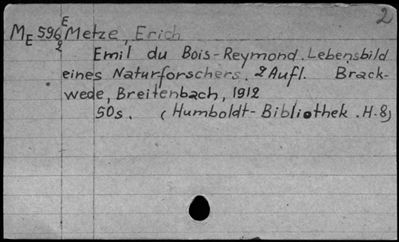 2
E
ME 596 Metze, Erich
2
Emil du Bois-Reymond. Lebensbild
eines Naturforschers. 2 Aufl. Brack-
wede, Breitenbach, 1912
50s. (Humboldt-Bibliothek. H.8)